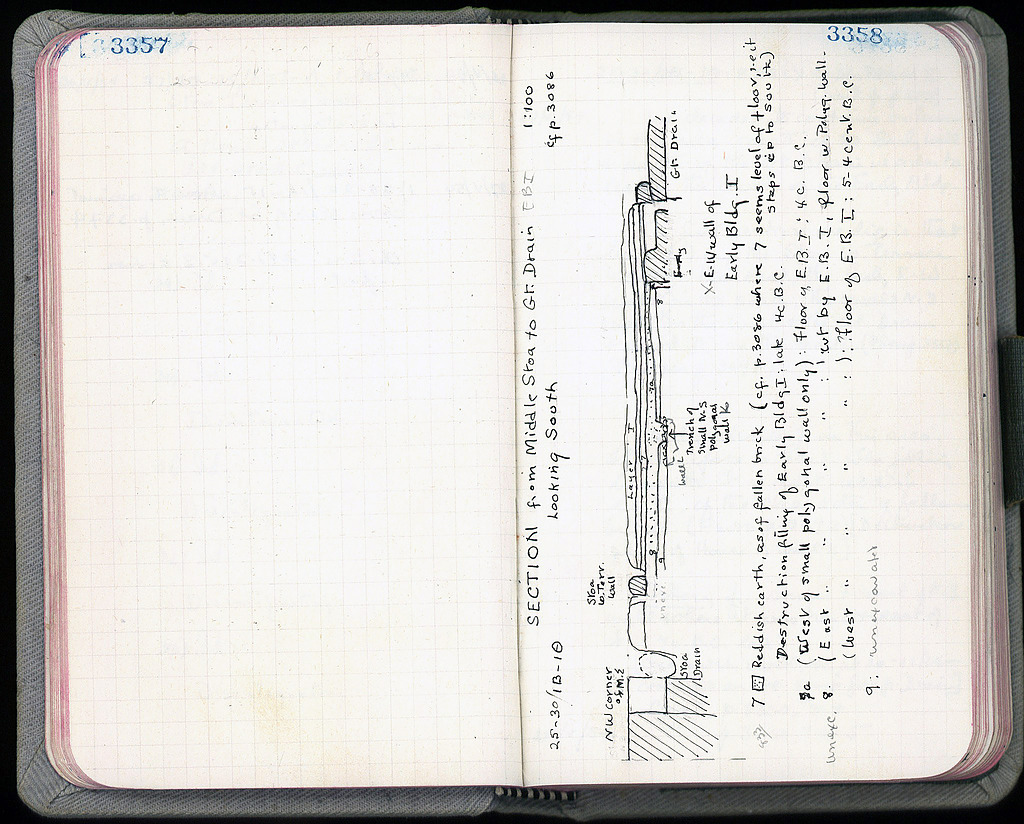 3357
3358
SECTION from Middle Stoa to Gt. Drain EBI 1:100
25-30/1B-10 Looking South cf p. 3086
NW Corner
of M.S
Stoa
W. Terr.
wall
Stoa
Drain
Layer I
7
7a
8
8
9
wall
Trench of
Small N-S
polygonal
wall K
X-E-W wall of
Early Bldg. I
Gt. Drain
7 Reddish earth, as of fallen brick (cf. p. 3086 where 7 seems level of floor, it
steps up to south)
Destruction filling of Early Bldg I: late 4c. B.C.
7a (West of small polygonal wall only): Floor of E.B.I: 4c. B.C.
8. (East " " " " : cut by E.B.I, floor w. Polyg. wall.
unexc. (West " " " " ): Floor of E.B.I: 5-4 cent. B.C.
9: unexcavated